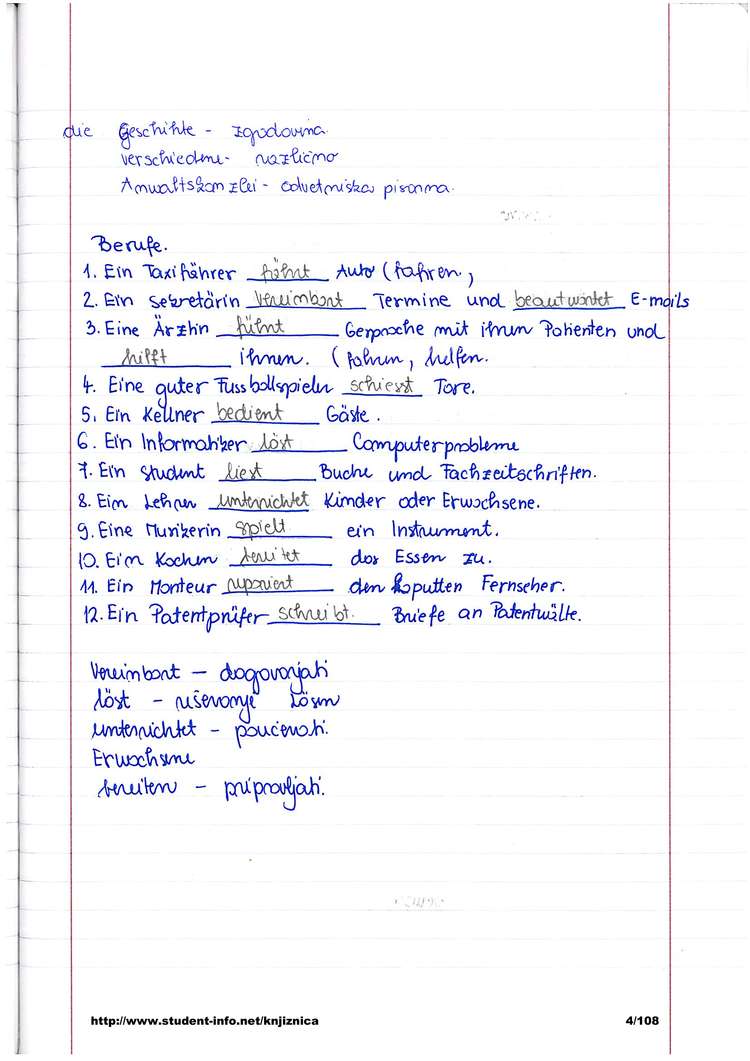 die Geschihte - zgodovina
verschiedene - različno
Anwaltskanzlei - odvetniška pisarna.
Berufe.
1. Ein Taxifährer fährt Auto (fahren,
2. Ein Sekretärin vereimbart Termine und beautwortet E-mails
3. Eine Ärztin führt Gespräche mit ihren Patienten und
hilft ihnen. (fahren, helfen.
4. Eine guter Fussballspieler schiesst Tore.
5. Ein Kellner bedient Gäste.
6. Ein Informatiker löst Computerprobleme
7. Ein Student liest Buche und Fachzeitschriften.
8. Ein Lehrer unterrichtet Kinder oder Erwachsene.
9. Eine Murikerin spielt ein Instrument.
10. Ein Kochen bereitet das Essen zu.
11. Ein Monteur repariert den kaputten Fernseher.
12. Ein Patentprüfer schreibt. Briefe an Patentwälte.
Vereimbart - dogovarjati
löst - reševanje Lösen
unterrichtet - poučevati.
Erwachsene
bereiten - pripravljati.
http://www.student-info.net/knjiznica 4/108